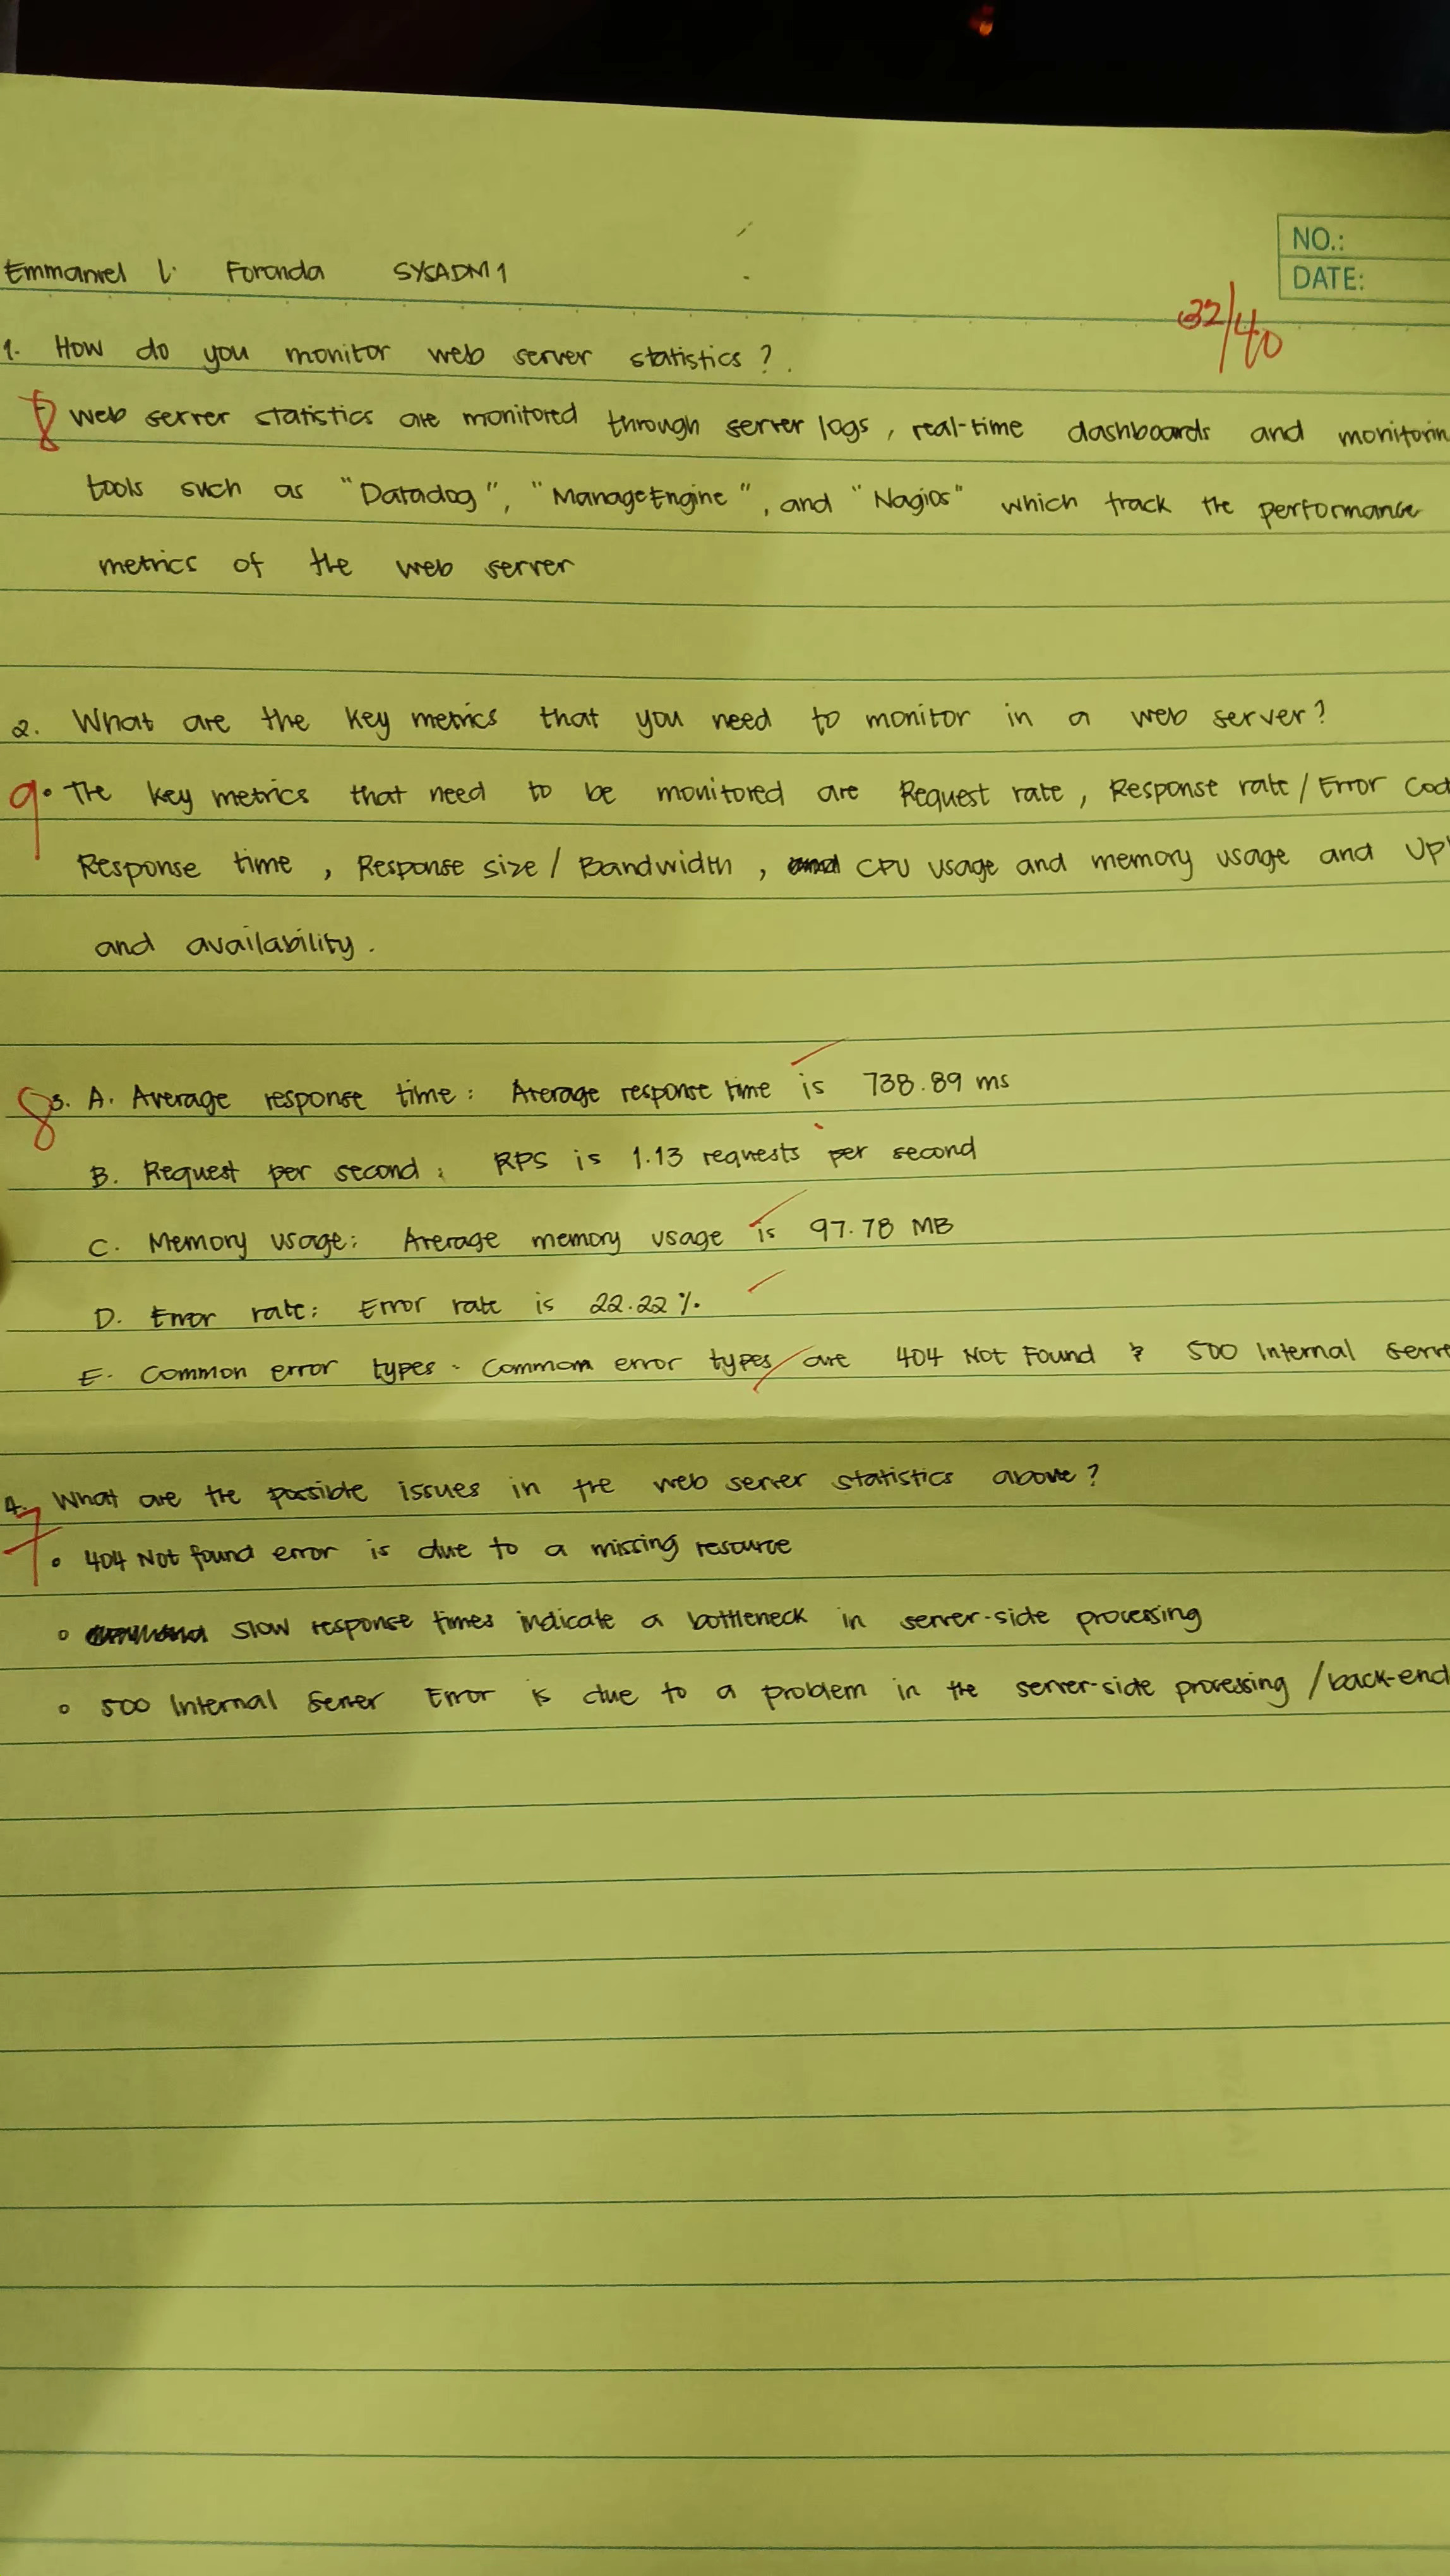 NO.:
DATE:
Emmanuel L. Foronda SYSADM1
32/40
1. How do you monitor web server statistics?
8 Web server statistics are monitored through server logs, real-time dashboards and monitorin
tools such as "Datadog", "ManageEngine", and "Nagios" which track the performance
metrics of the web server
2. What are the key metrics that you need to monitor in a web server?
9 • The key metrics that need to be monitored are Request rate, Response rate/Error Cod
Response time, Response size/Bandwidth, and CPU usage and memory usage and Up
and availability.
8 3. A. Average response time: Average response time is 738.89 ms
B. Request per second: RPS is 1.13 requests per second
C. Memory usage: Average memory usage is 97.78 MB
D. Error rate: Error rate is 22.22%.
E. Common error types - Common error types are 404 Not Found & 500 Internal Serve
4. What are the possible issues in the web server statistics above?
7 • 404 Not found error is due to a missing resource
• slow response times indicate a bottleneck in server-side processing
• 500 Internal Server Error is due to a problem in the server-side processing /back-end